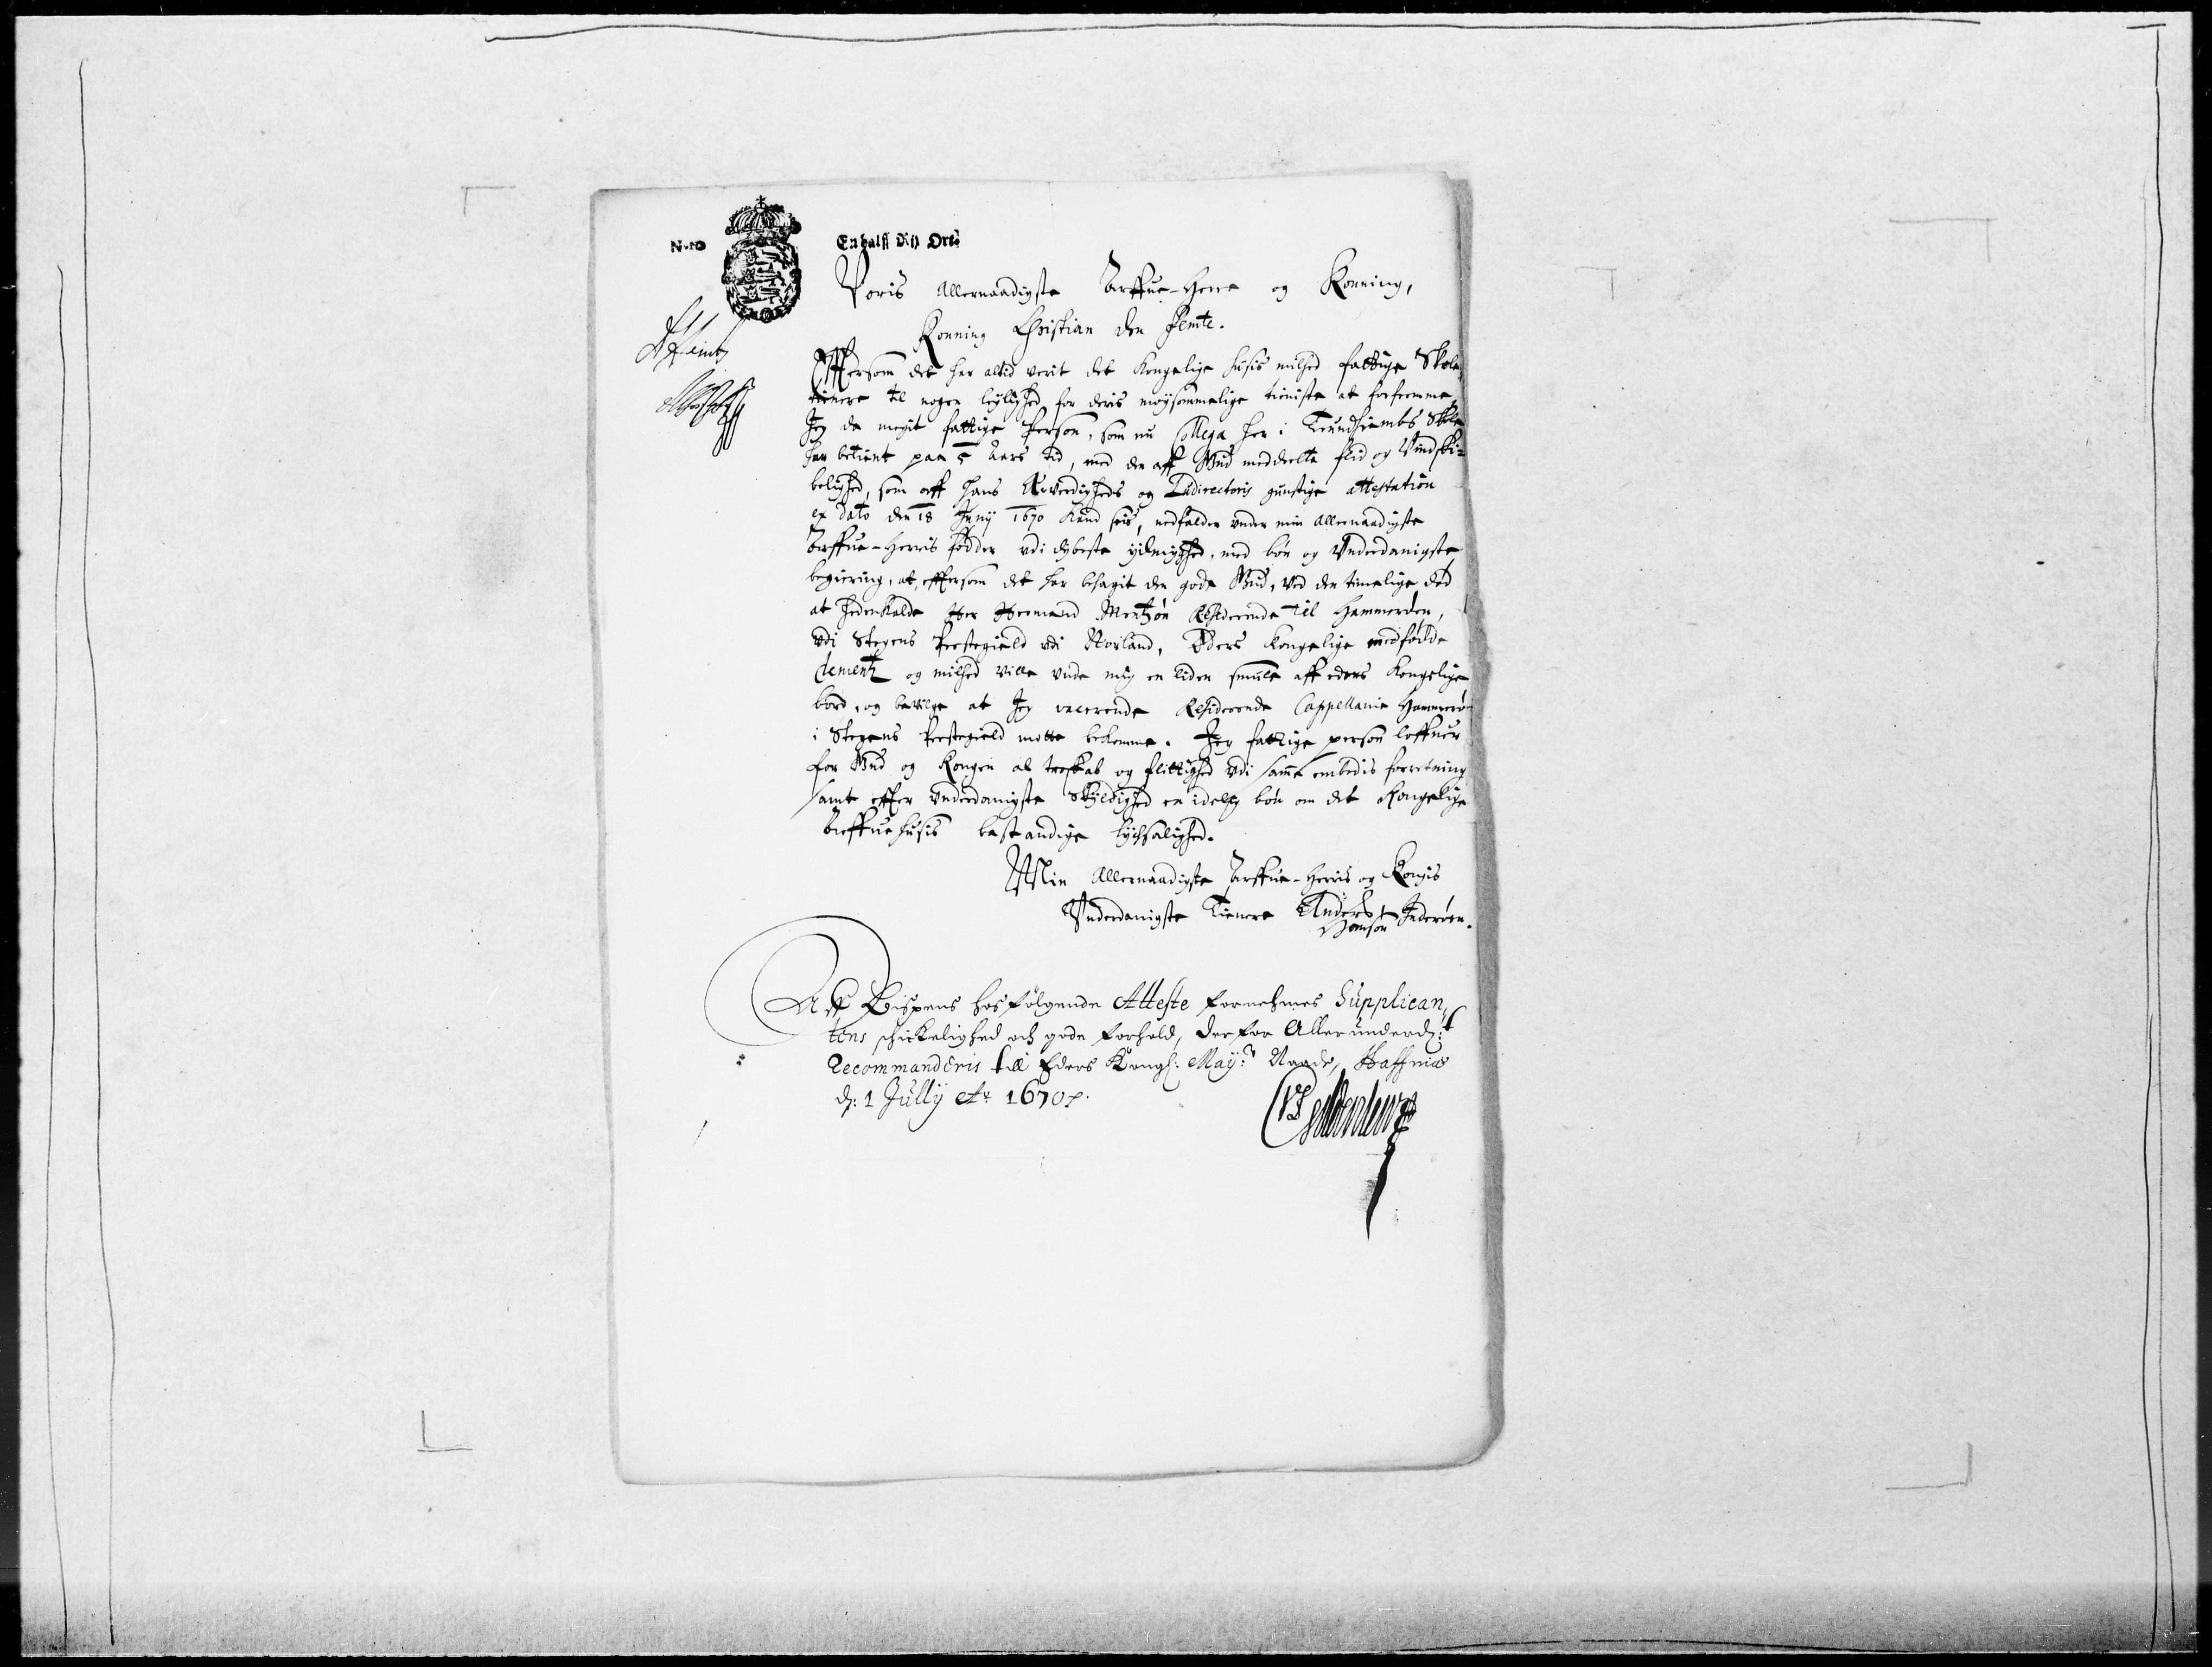 No 10
En halff Rix Ort
Voris Allernaadigste Arffue-Herre og Konning,
Konning Christian den Femte.
Effersom det har altid verit det Kongelige Husis milhed fattige Skole
tienere til nogen leylighed for deris moysommelige tieniste at forfremme,
Jeg da megit fattige Person, som nu Collega her i Trundhiembs Skole
har betient paa 5 Aars tid, med den aff Gud meddeelte flid og Vindski-
belighed, som aff Hans Ærverdigheds og Ludirectoris gunstige attestation
ex dato den 18 Junij 1670 kand seis, nedfalder under min allernaadigste
Arffue-Herris födder udi dybeste ydmyghed, med bön og Underdanigste
begiering, at, effersom det har behagit den gode Gud, ved den timelige död
at hedenkalde Her Hermand Mentzön Residerende til Hammeröen,
udi Stegens Prestegield udi Norland, Eders Kongelige medfödde
Clementz og milhed ville unde mig en liden smule aff eders Kongelige
bord, og bevilge at Jeg vacerende Residerende Cappellanie Hammerö
i Stegens Prestegield motte bekomme. Jeg fattige person loffuer
for Gud og Kongen al troskab og flittighed udi samme embedis forretning
samt effter underdanigste Skyldighed en idelig bön om det Kongelige
Arffue husis bestandige lychsalighed.
Min Allernaadigste Arffue-Herris og Kongis
Underdanigste Tienere Anders Hansön Inderöen.
Aff Bispens hosfölgende Atteste fornehmes Supplican-
tens schickelighed och gode forhold, derfor Allerunderd:st
Recommanderis till Eders Kongl: May:ts Naade, Haffniæ
d: 1 Jully Ao 1670